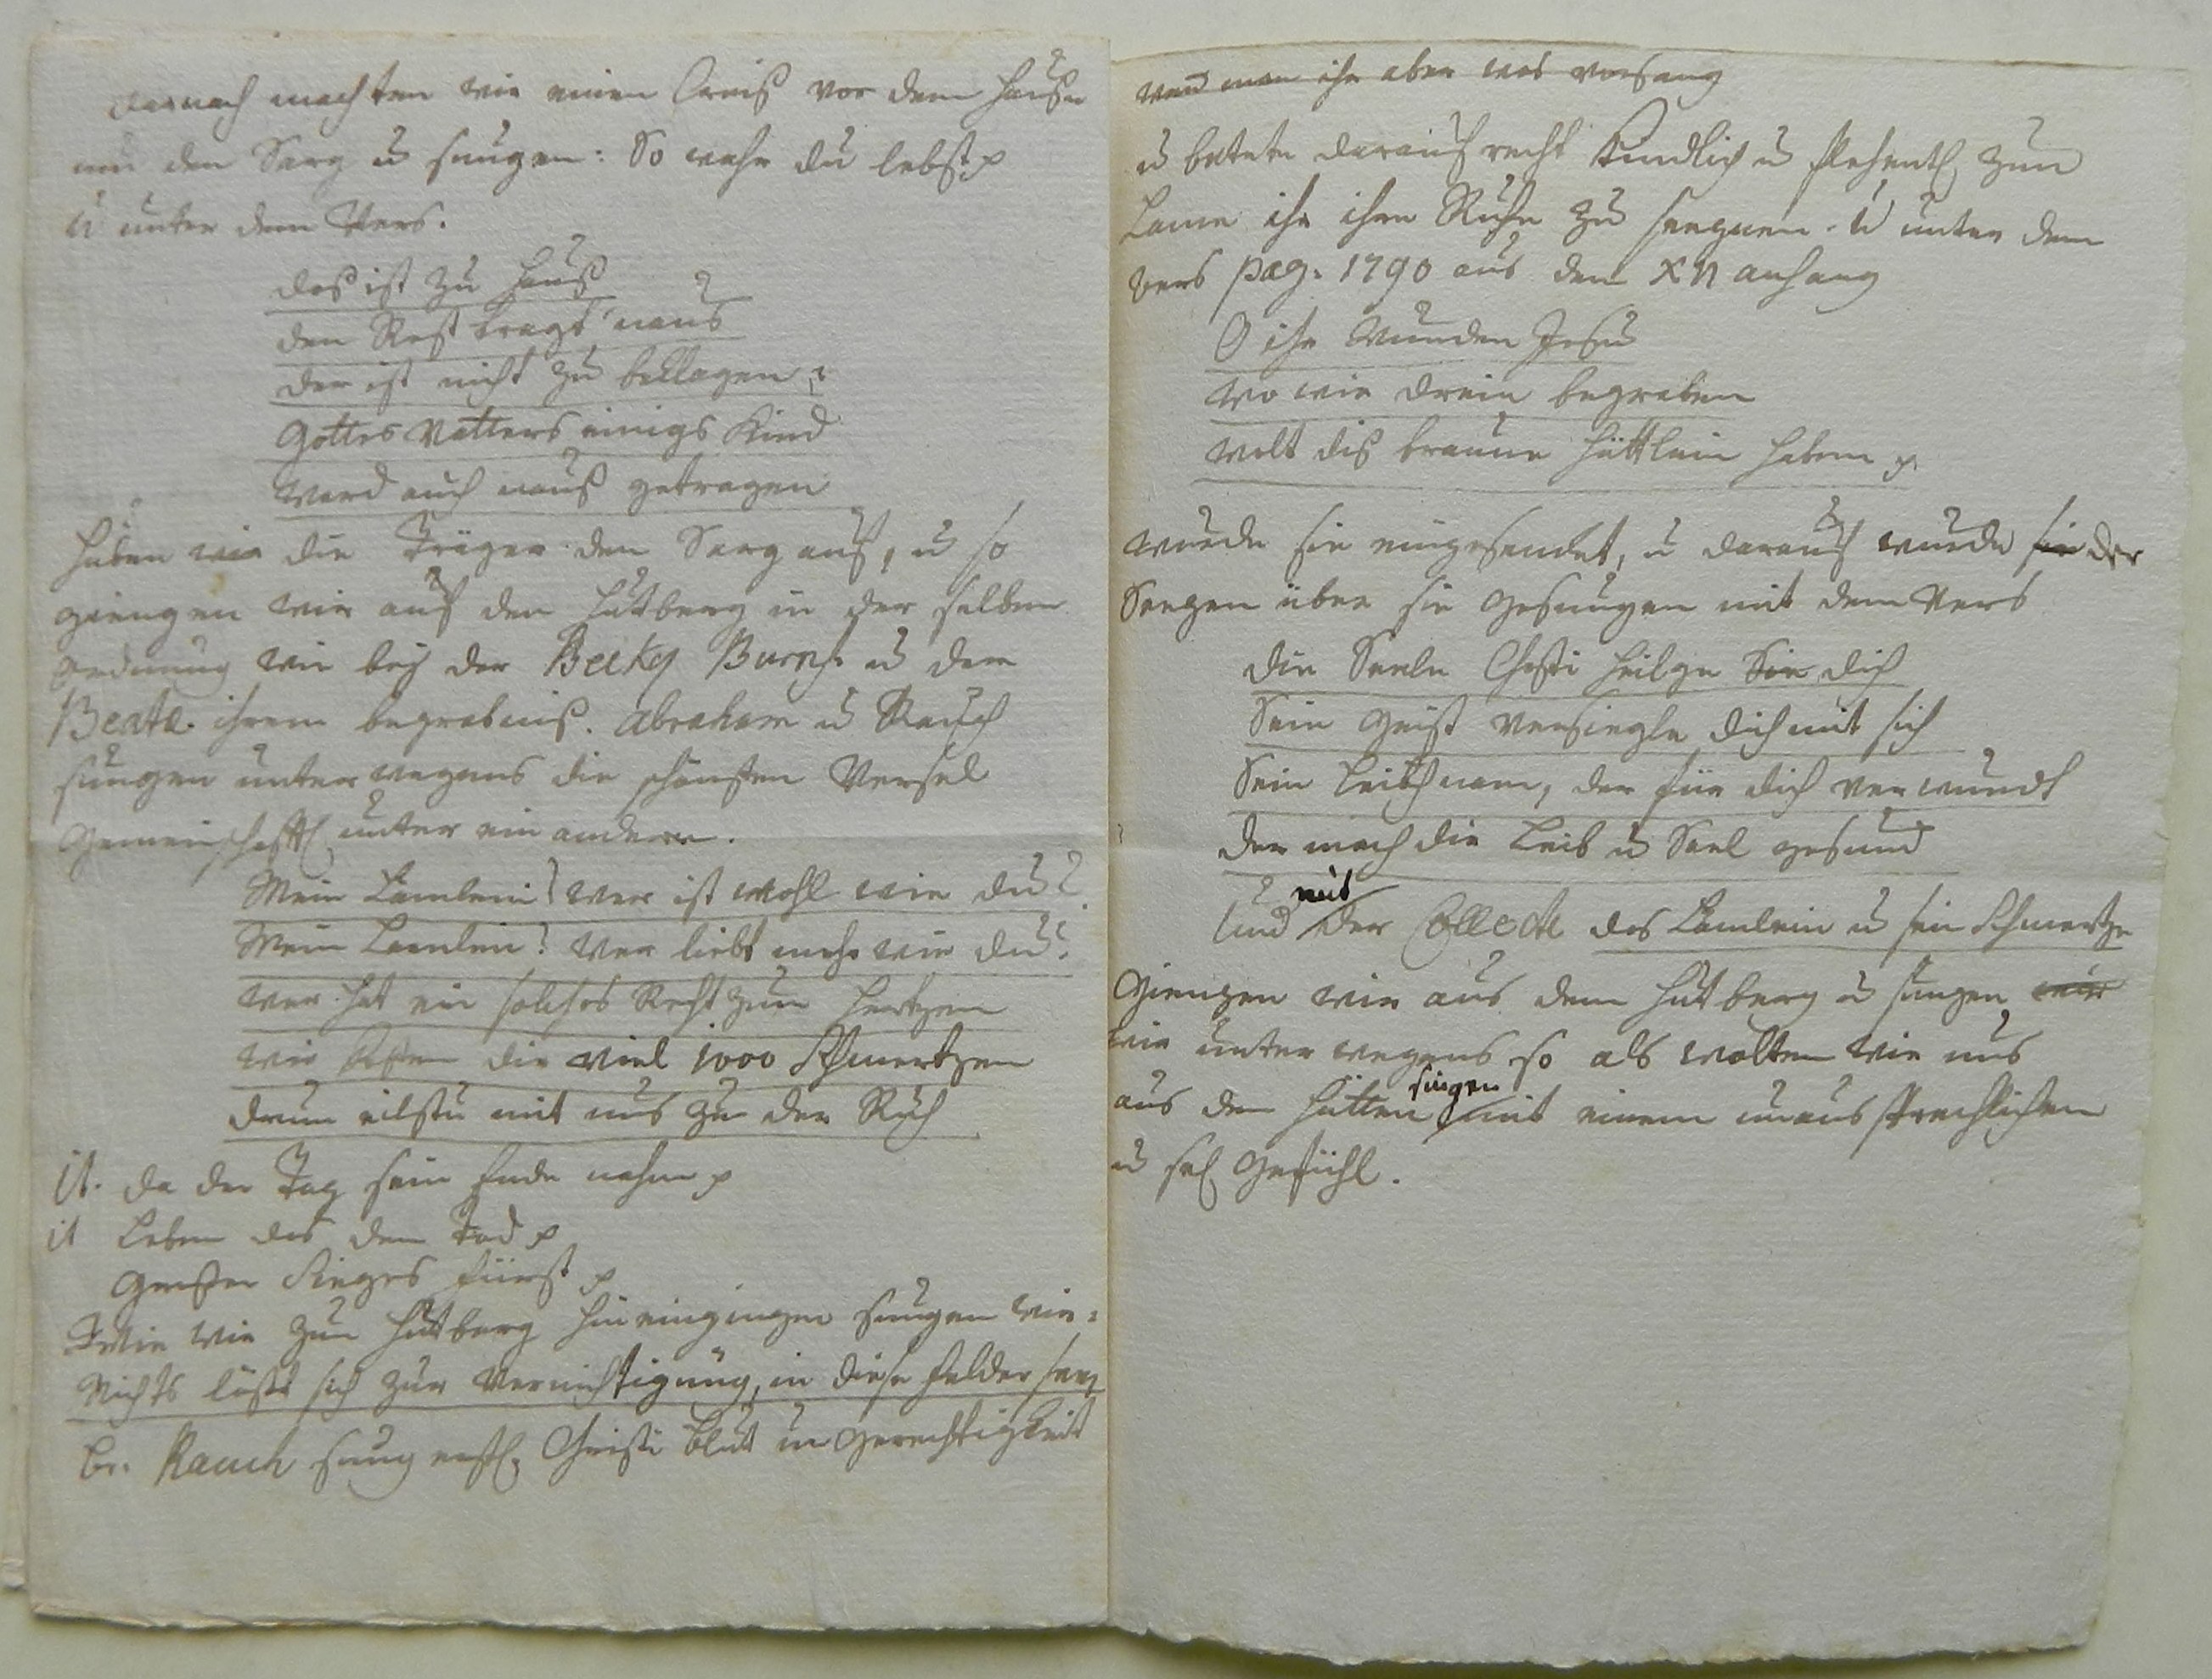 darnach machten wir einen Creiß vor dem Hauße
um den Sarg u sungen: So wahr du lebst p
u unter dem Vers.
das ist zu Hauß
den Rest tragt naus
der ist nicht zu beklagen
Gottes Vatters einigs Kind
Ward auch nauß getragen
huben wir die Träger den Sarg auf, u so
giengen wir auf den Hutberg in der selben
ordnung wie bey der Becky Burns. u dem
Beata. ihrem begrabniß. Abraham u Rauch
sungen unterwegens die schönsten Versel
Gemeinschaftl unter ein andern.
Mein Lamlein! wer ist wohl wie du?
Mein Lamlein! wer liebt mehr wie du?
wer hat ein solches Recht zum Hertzen
wir die viel 1000 Schmertzen
drum eilstu mit uns zu der Ruh
it. da der Tag sein Ende nahm p
it Leben das den Tod p
Großer Sieges Fürst p
Wie wir zum Hutberg hineingingen sungen wir:
Nichts läßt sich zur Vernichtigung, in diese Felder seen
Br. Rauch sung erstl. Christi Blut u Gerechtigkeit
ward man ihr aber was vorsang
u betete darauf recht Kindlich u flehentl zum
Lamm ihr ihre Ruhe zu seegnen. U unter dem
Vers pag. 1790 aus dem XII anhang
O ihr Wunden Jesu
wo wir drein begraben
wolt dis braune Hüttlein haben p
wurde sie eingesenket, u darauf wurde sie der
Seegen über sie gesungen mit dem Vers
die Seele Christi heilge Sie dich
Sein Geist versiegle dich mit sich
Sein Leichnam, der für dich verwundt
der mach dir Leib u Seel gesund
Und mit der Collecte das Lamlein u sein Schmertze
Giengen wir aus dem Hutberg u sungen wir
wir unterwegens so als wolten wir uns
aus den Hütten singen mit einem unaussprechlichen
u sel Gefühl.